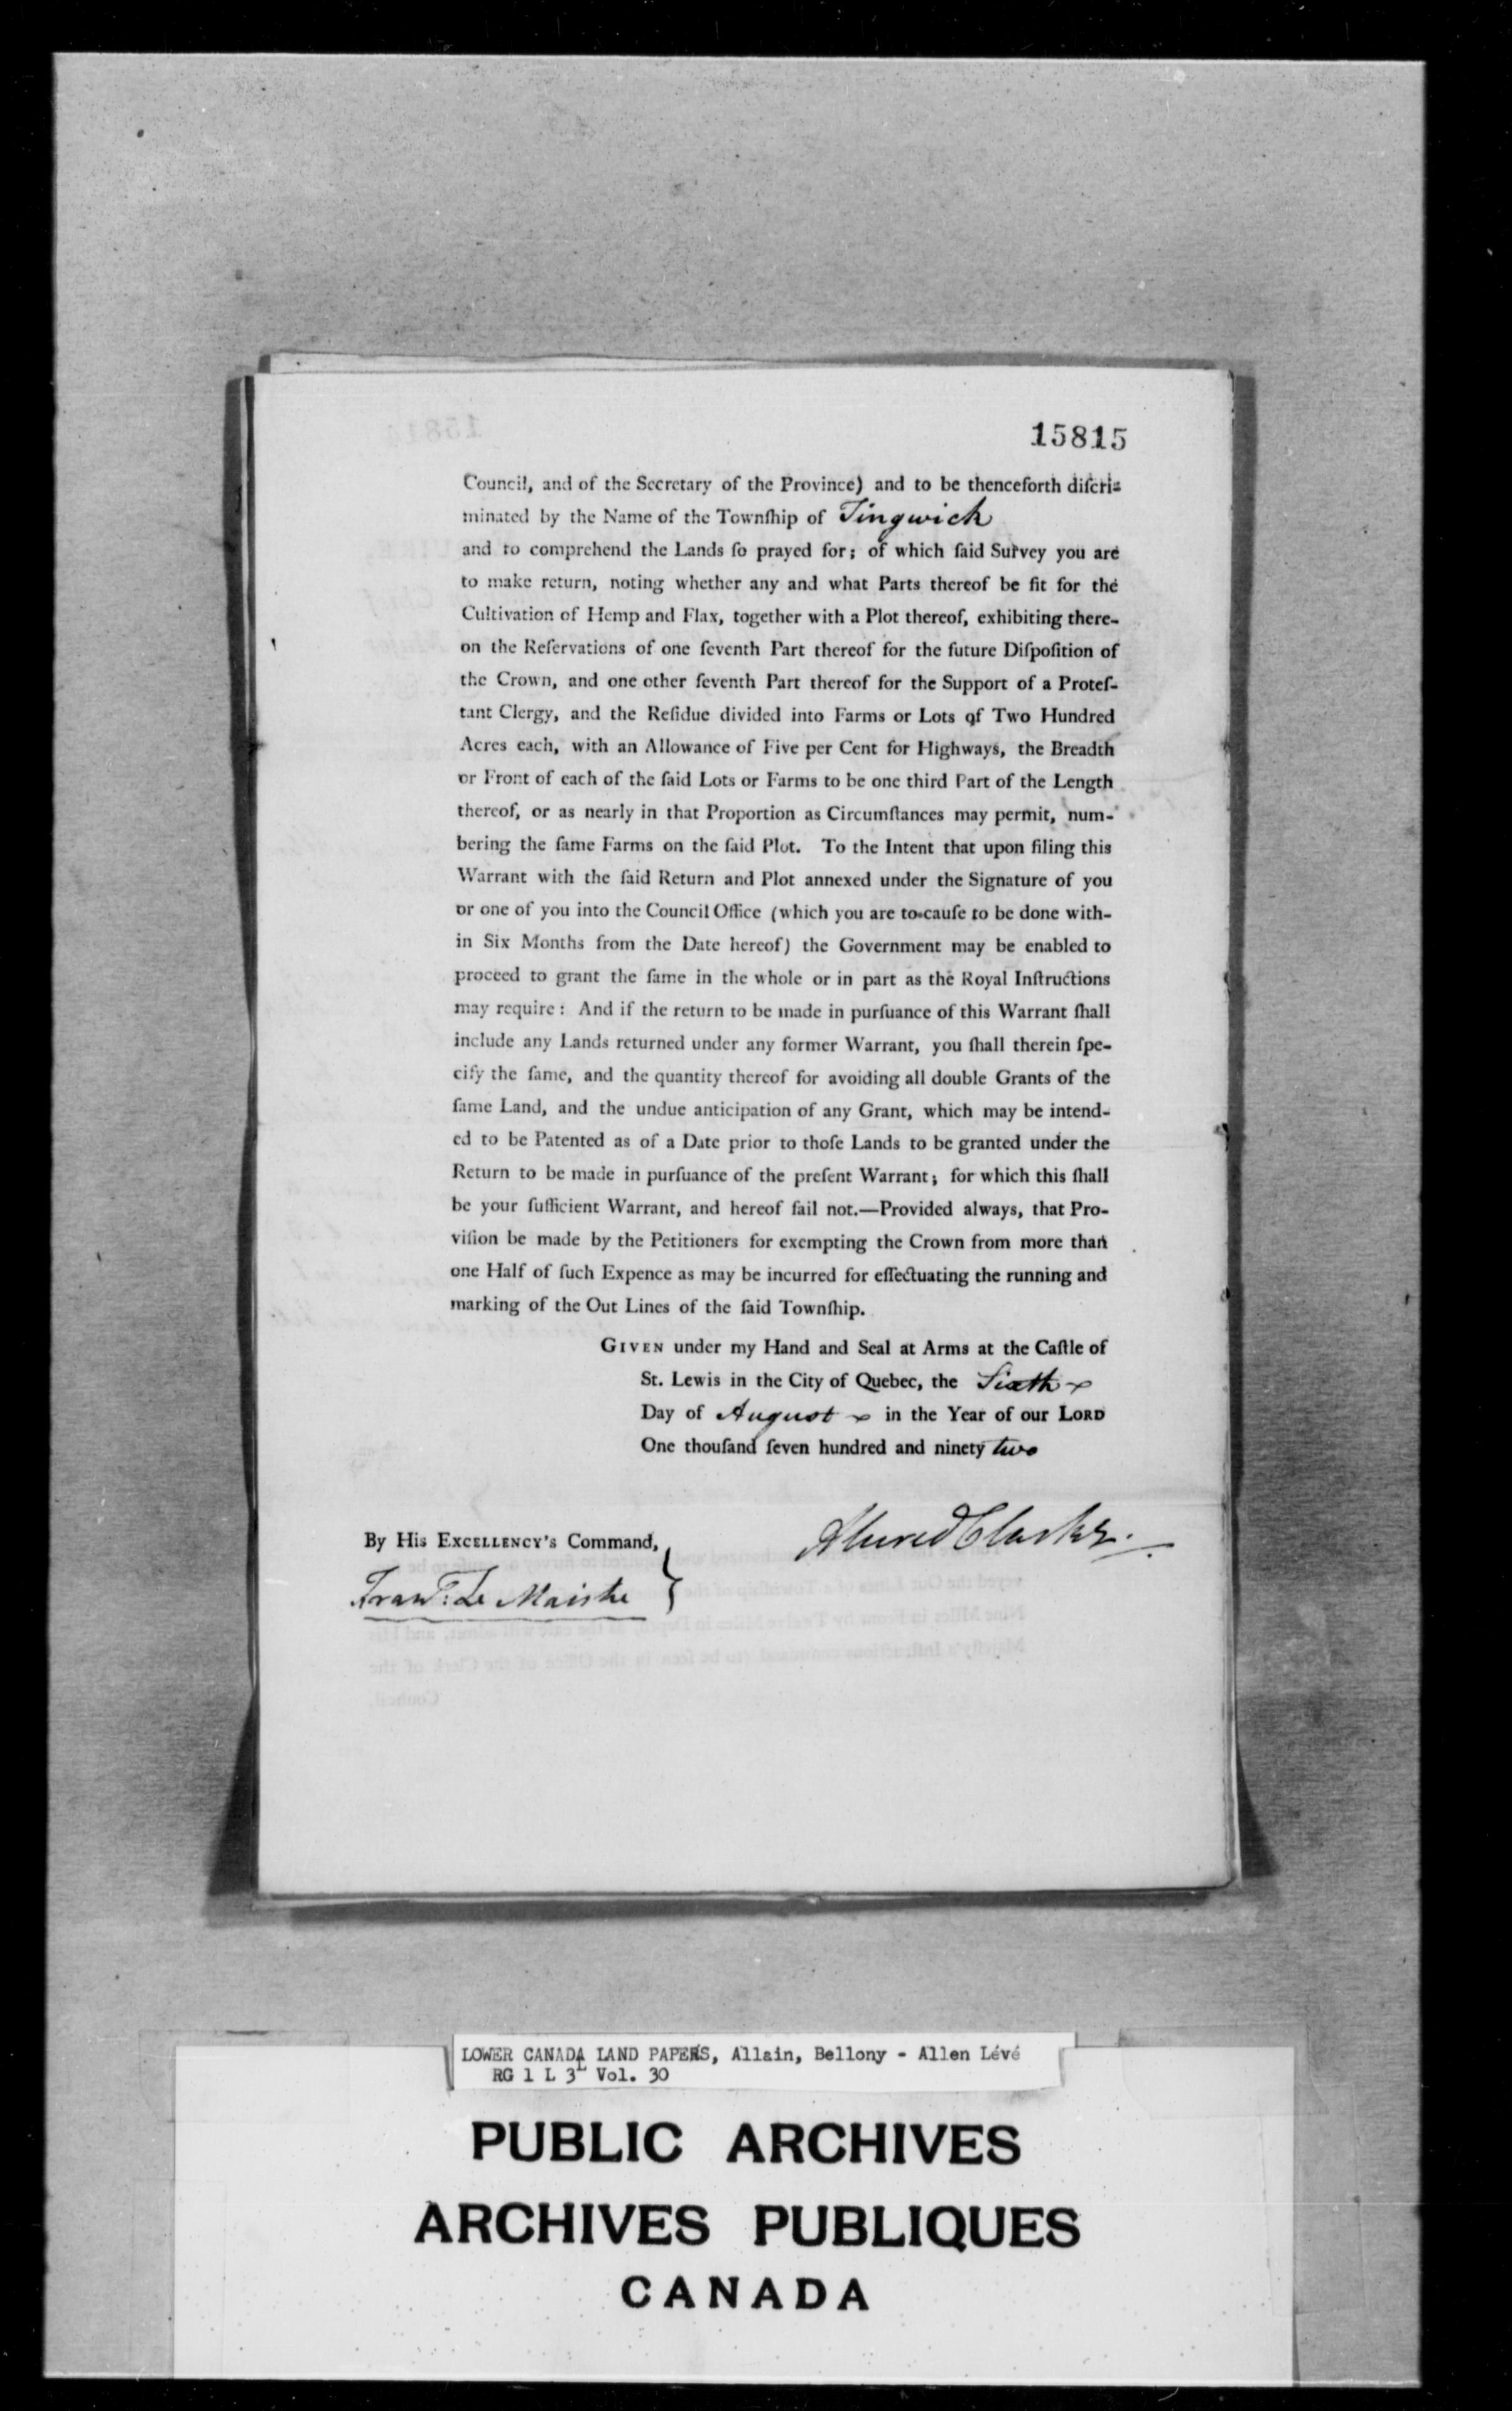 15815
Council, and of the Secretary of the Province) and to be thenceforth diſcri-
minated by the Name of the Townſhip of Tingwick
and to comprehend the Lands ſo prayed for; of which ſaid Survey you are
to make return, noting whether any and what Parts thereof be fit for the
Cultivation of Hemp and Flax, together with a Plot thereof, exhibiting there-
on the Reſervations of one ſeventh Part thereof for the future Diſpoſition of
the Crown, and one other ſeventh Part thereof for the Support of a Proteſ-
tant Clergy, and the Reſidue divided into Farms or Lots of Two Hundred
Acres each, with an Allowance of Five per Cent for Highways, the Breadth
or Front of each of the ſaid Lots or Farms to be one third Part of the Length
thereof, or as nearly in that Proportion as Circumſtances may permit, num-
bering the ſame Farms on the ſaid Plot. To the Intent that upon filing this
Warrant with the ſaid Return and Plot annexed under the Signature of you
or one of you into the Council Office (which you are to cauſe to be done with-
in Six Months from the Date hereof) the Government may be enabled to
proceed to grant the ſame in the whole or in part as the Royal Inſtructions
may require: And if the return to be made in purſuance of this Warrant ſhall
include any Lands returned under any former Warrant, you ſhall therein ſpe-
cify the ſame, and the quantity thereof for avoiding all double Grants of the
ſame Land, and the undue anticipation of any Grant, which may be intend-
ed to be Patented as of a Date prior to thoſe Lands to be granted under the
Return to be made in purſuance of the preſent Warrant; for which this ſhall
be your ſufficient Warrant, and hereof fail not.—Provided always, that Pro-
viſion be made by the Petitioners for exempting the Crown from more than
one Half of ſuch Expence as may be incurred for effectuating the running and
marking of the Out Lines of the ſaid Townſhip.
GIVEN under my Hand and Seal at Arms at the Caſtle of
St. Lewis in the City of Quebec, the Sixth
Day of August in the Year of our LORD
One thouſand ſeven hundred and ninety two
Alured Clarke.
By His EXCELLENCY's Command,
Frans: Le Maistre
LOWER CANADA LAND PAPERS, Allain, Bellony - Allen Lévé
RG 1 L 3L Vol. 30
PUBLIC ARCHIVES
ARCHIVES PUBLIQUES
CANADA